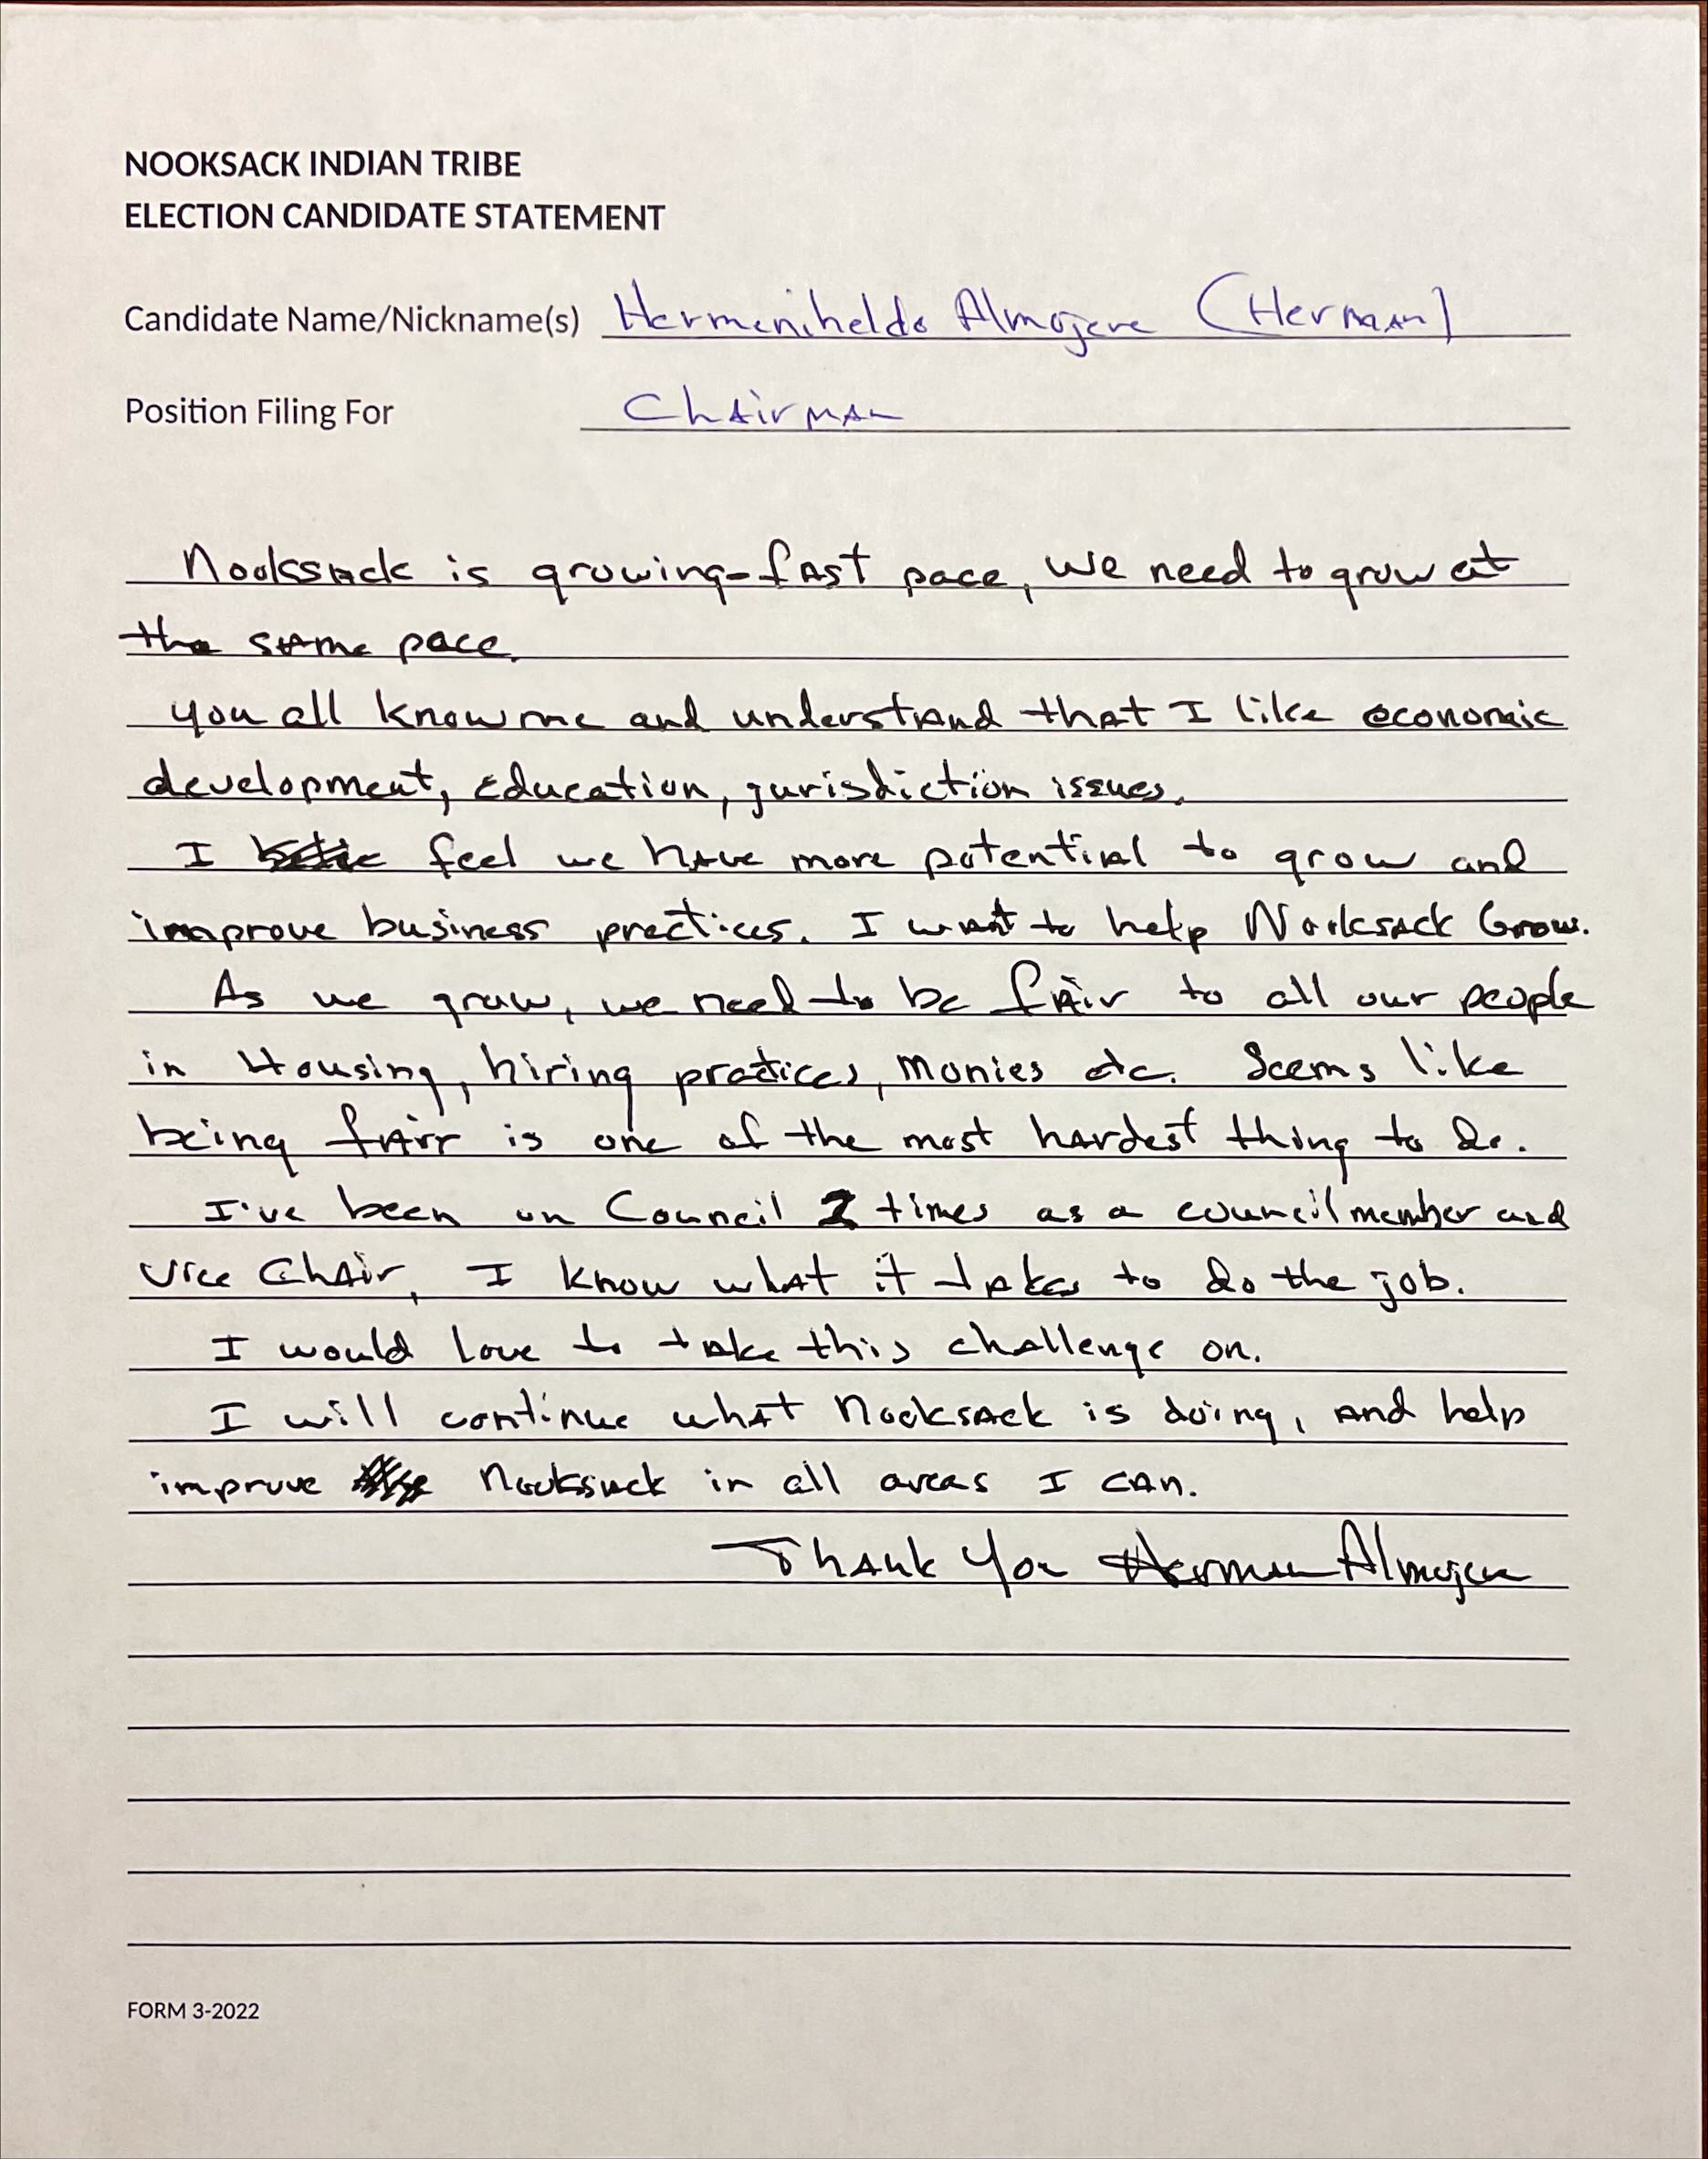 NOOKSACK INDIAN TRIBE
ELECTION CANDIDATE STATEMENT
Candidate Name/Nickname(s) Hermeniheldo Almojera (Herman)
Position Filing For Chairman
Nooksack is growing-fast pace, we need to grow at
the same pace.
you all know me and understand that I like economic
development, education, jurisdiction issues.
I feel we have more potential to grow and
improve business practices. I want to help Nooksack Grow.
As we grow, we need to be fair to all our people
in Housing, hiring practices, monies etc. Seems like
being fair is one of the most hardest thing to do.
I've been on Council 2 times as a councilmember and
Vice Chair, I know what it takes to do the job.
I would love to take this challenge on.
I will continue what Nooksack is doing, and help
improve Nooksack in all areas I can.
Thank You Herman Almojera
FORM 3-2022